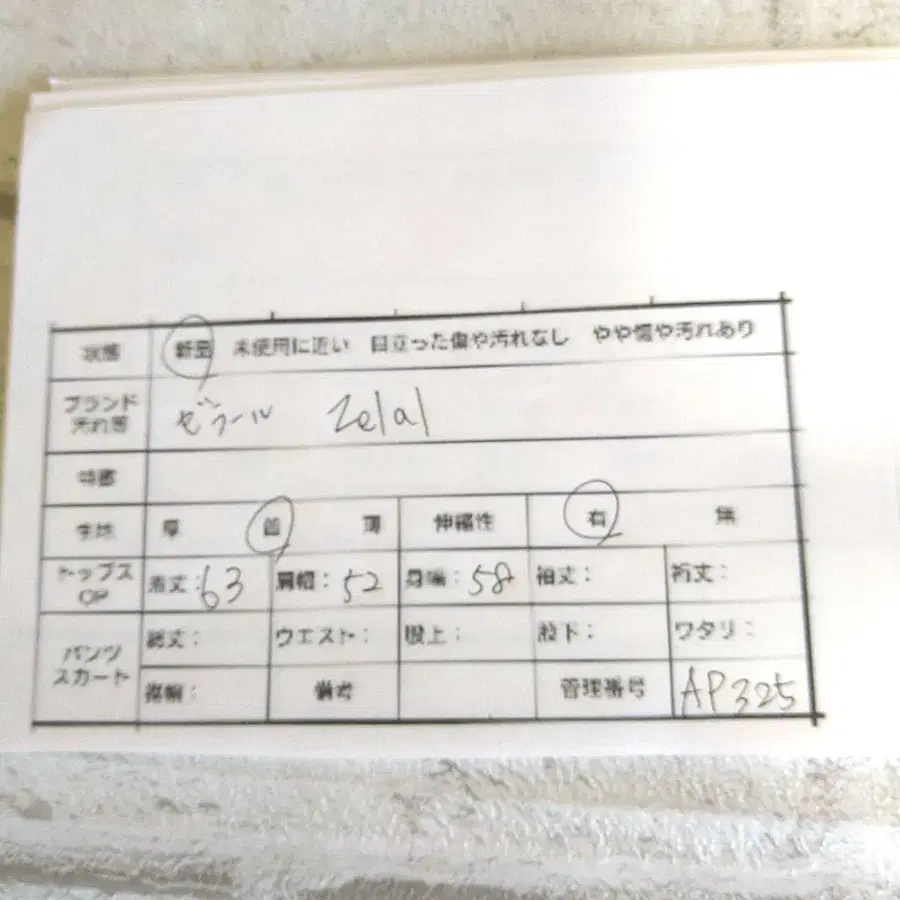 状態 新品 未使用に近い 目立った傷や汚れなし やや傷や汚れあり
ブランド
汚れ等
ゼラール Zelal
特徴
生地 厚 普 薄 伸縮性 有 無
トップス
OP
着丈：63 肩幅：52 身幅：58 袖丈： 裄丈：
パンツ
スカート
総丈： ウエスト： 股上： 股下： ワタリ：
裾幅： 備考 管理番号 AP325